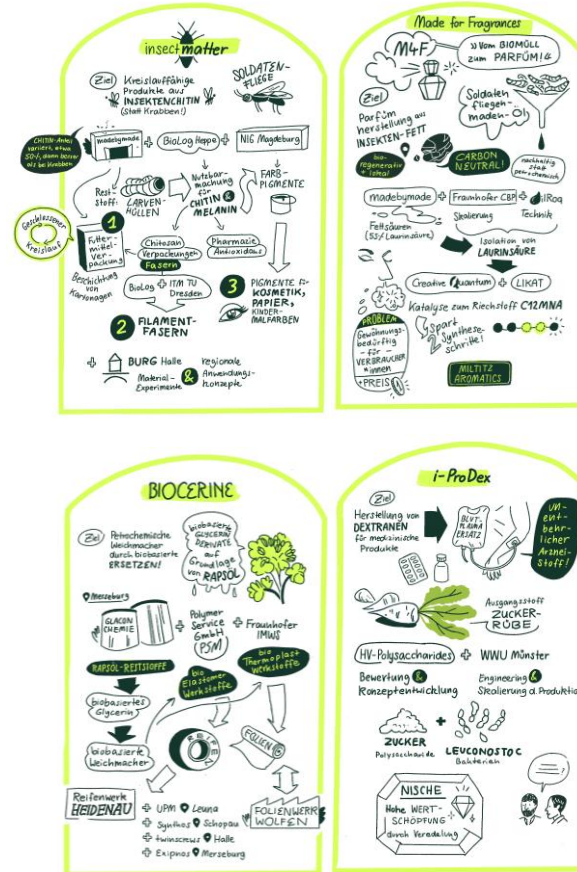 insectmatter
Ziel
Kreislauffähige
Produkte aus
INSEKTENCHITIN
(Statt Krabben!)
SOLDATEN-
FLIEGE
CHITIN-Anteil
variiert, etwa
dann besser
als bei Krabben
madebymade
+
BioLog Heppe
+
NIG Magdeburg
Rest-
stoff:
LARVEN-
HÜLLEN
Nutzbar-
machung
für
CHITIN &
MELANIN
FARB-
PIGMENTE
Geschlossener
Kreislauf
1
Futter-
mittel-
Ver-
packung
Beschichtung
von
Kartonagen
Chitosan
Verpackungen
Fasern
Pharmazie
Antioxidans
BioLog + ITM TU
Dresden
2 FILAMENT-
FASERN
3 PIGMENTE für
KOSMETIK,
PAPIER,
KINDER-
MALFARBEN
+ BURG Halle
Material-
Experimente
&
regionale
Anwendungs-
konzepte
Made for Fragrances
M4F
»Vom BIOMÜLL
zum PARFÜM!«
Ziel
Parfüm
herstellung aus
INSEKTEN-FETT
Soldaten
fliegen-
maden-Öl
bio-
regenerativ
+ lokal
CARBON
NEUTRAL!
nachhaltig
statt
petrochemisch
madebymade
+
Fraunhofer CBP
+
OilRoq
Fettsäuren
(55% Laurinsäure)
Skalierung
Technik
Isolation von
LAURINSÄURE
Creative Quantum + LIKAT
Katalyse zum Riechstoff C12MNA
PROBLEM
Gewöhnungs-
bedürftig
-für-
VERBRAUCHER
*innen
+PREIS
Spart
2 Synthese-
schritte!
MILTITZ
AROMATICS
BIOCERINE
Ziel
Petrochemische
Weichmacher
durch biobasierte
ERSETZEN!
biobasierte
GLYCERIN
DERIVATE
auf
Grundlage
von RAPSÖL
Merseburg
GLACON
CHEMIE
+
Polymer
Service
GmbH
PSM
+
Fraunhofer
IMWS
RAPSÖL-RESTSTOFFE
bio
Elastomer
Werkstoffe
bio
Thermoplast
Werkstoffe
biobasiertes
Glycerin
biobasierte
Weichmacher
REIFEN
FOLIEN
Reifenwerk
HEIDENAU
+ UPM Leuna
+ Synthos Schopau
+ twinscrews Halle
+ Exipnos Merseburg
FOLIENWERK
WOLFEN
i-ProDex
Ziel
Herstellung von
DEXTRANEN
für medizinische
Produkte
BLUT-
PLASMA
ERSATZ
Un-
ent-
behr-
licher
Arznei-
stoff!
Ausgangsstoff
ZUCKER-
RÜBE
HV-Polysaccharides + WWU Münster
Bewertung &
Konzeptentwicklung
Engineering &
Skalierung d. Produktion
ZUCKER
Polysaccharide
+
LEUCONOSTOC
Bakterien
NISCHE
Hohe WERT-
SCHÖPFUNG
durch Veredelung